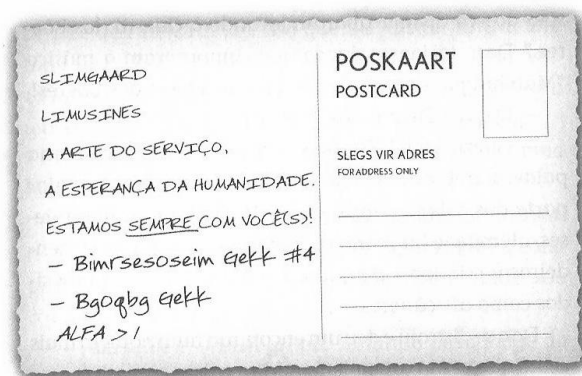 SLIMGAARD
LIMUSINES
A ARTE DO SERVIÇO,
A ESPERANÇA DA HUMANIDADE.
ESTAMOS SEMPRE COM VOCÊ(S)!
— Bimrsesoseim Gekk #4
— Bgoqbg Gekk
ALFA > 1
POSKAART
POSTCARD
SLEGS VIR ADRES
FOR ADDRESS ONLY